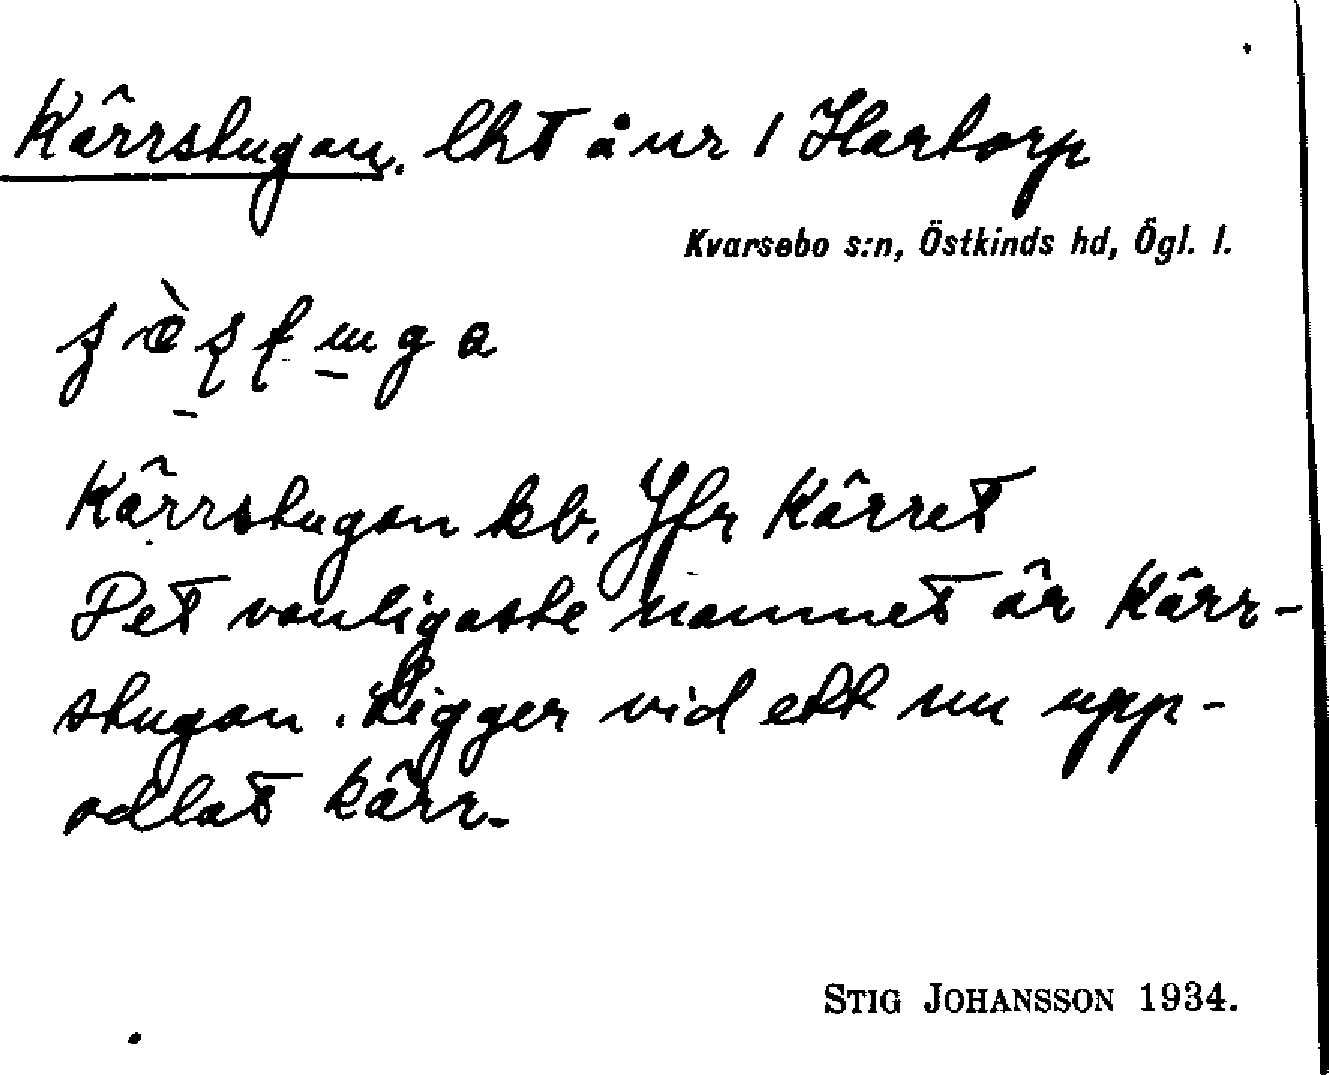 Kärrstugan. lht å nr 1 Hartorp
Kvarsebo s:n, Östkinds hd, Ögl. l.
Kärrstugan kb. Jfr Kärret
Det vanligaste namnet är Kärr-
stugan. Ligger vid ett nu upp-
odlat kärr.
STIG JOHANSSON 1934.